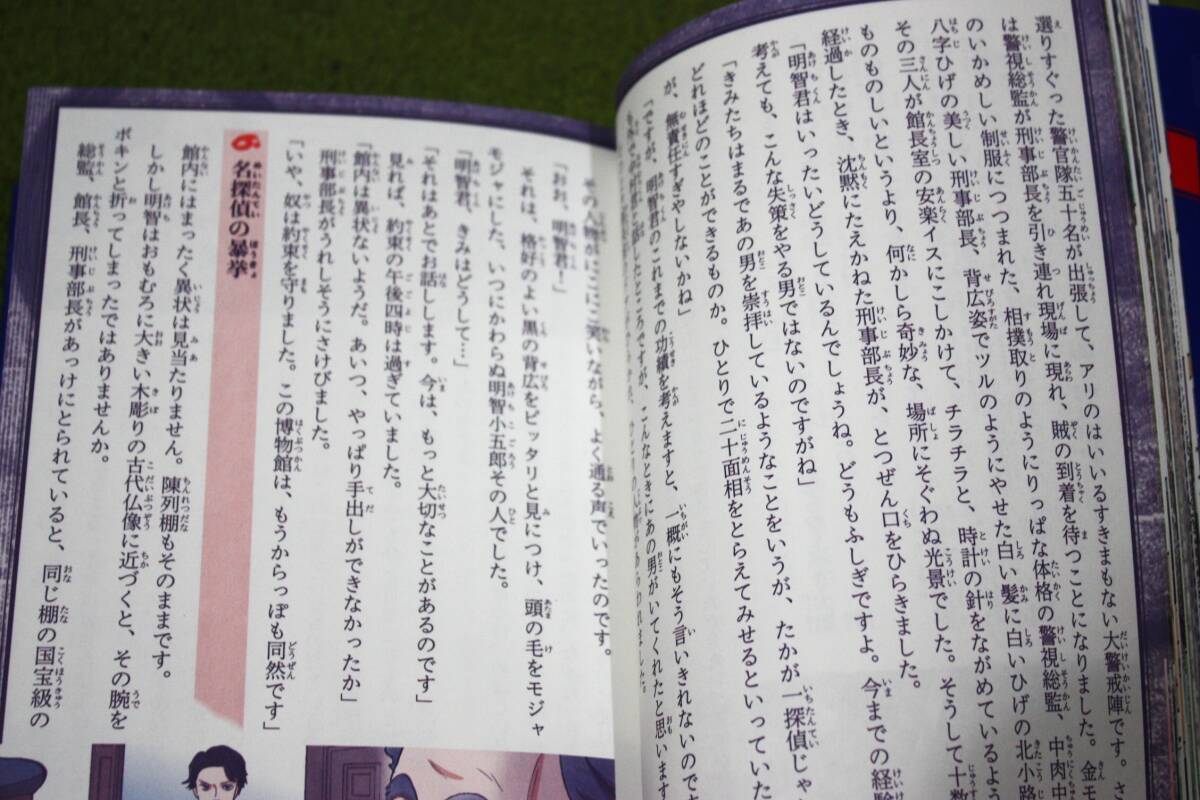 選りすぐった警官隊五十名が出張して、アリのはいいるすきまもない大警戒陣です。さ
は警視総監が刑事部長を引き連れ現場に現れ、賊の到着を待つことになりました。金モ
のいかめしい制服につつまれた、相撲取りのようにりっぱな体格の警視総監、中肉中
八字ひげの美しい刑事部長、背広姿でツルのようにやせた白い髪に白いひげの北小路
その三人が館長室の安楽イスにこしかけて、チラチラと、時計の針をながめているよう
ものものしいというより、何かしら奇妙な、場所にそぐわぬ光景でした。そうして十数
経過したとき、沈黙にたえかねた刑事部長が、とつぜん口をひらきました。
「明智君はいったいどうしているんでしょうね。どうもふしぎですよ。今までの経験
考えても、こんな失策をやる男ではないのですがね」
「きみたちはまるであの男を崇拝しているようなことをいうが、たかが一探偵じゃ
どれほどのことができるものか。ひとりで二十面相をとらえてみせるといっていた
が、無責任すぎやしないかね」
「ですが、明智君のこれまでの功績を考えますと、一概にもそう言いきれないので
こんなときにあの男がいてくれたと思います
笑いながら、よく通る声でいったのです。
「おお、明智君！」
それは、格好のよい黒の背広をピッタリと見につけ、頭の毛をモジャ
モジャにした、いつにかわらぬ明智小五郎その人でした。
「明智君、きみはどうして…」
「それはあとでお話しします。今は、もっと大切なことがあるのです」
見れば、約束の午後四時は過ぎていました。
「館内は異状ないようだ。あいつ、やっぱり手出しができなかったか」
刑事部長がうれしそうにさけびました。
「いや、奴は約束を守りました。この博物館は、もうからっぽも同然です」
名探偵の暴挙
館内にはまったく異状は見当たりません。陳列棚もそのままです。
しかし明智はおもむろに大きい木彫りの古代仏像に近づくと、その腕を
ポキンと折ってしまったではありませんか。
総監、館長、刑事部長があっけにとられていると、同じ棚の国宝級の